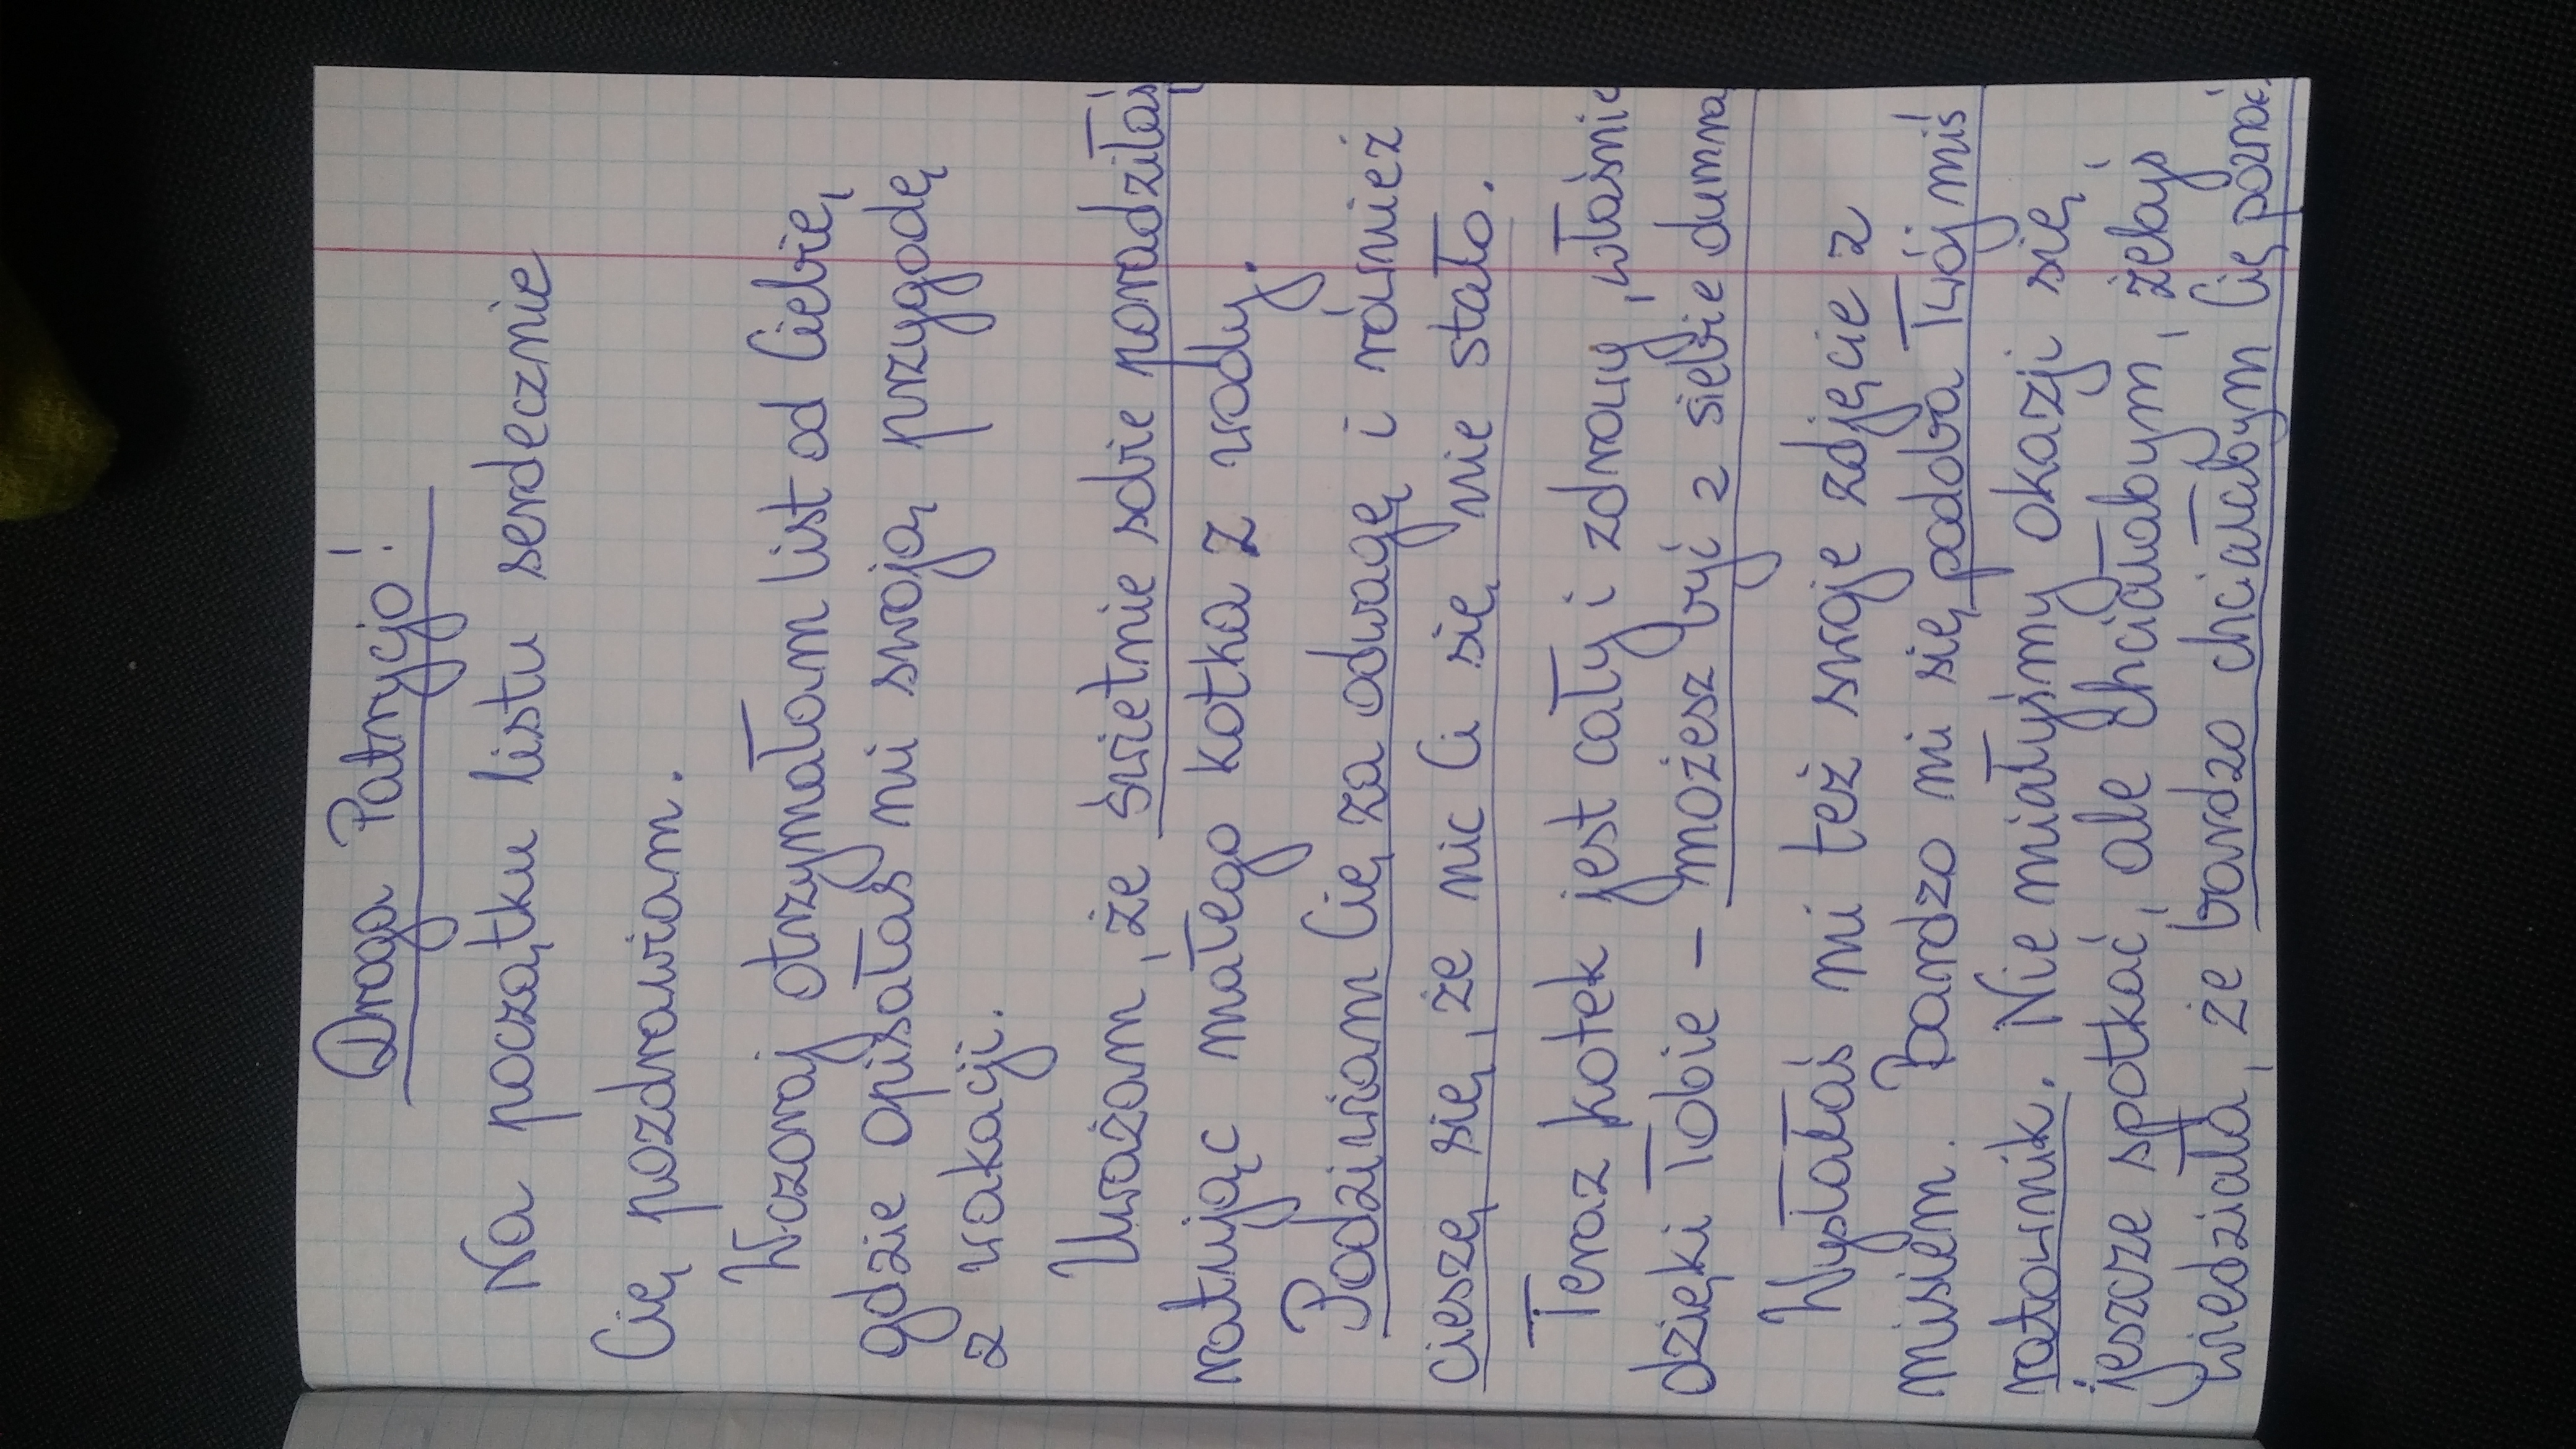 Droga Patrycjo!
Na początku listu serdecznie
Cię pozdrawiam.
Wczoraj otrzymałam list od Ciebie,
gdzie opisałaś mi swoją przygodę
z wakacji.
Uważam, że świetnie sobie poradziłaś
ratując małego kotka z wody.
Podziwiam Cię za odwagę i również
cieszę się, że nic Ci się nie stało.
Teraz kotek jest cały i zdrowy, właśnie
dzięki Tobie – możesz być z siebie dumna
Wysłałaś mi też swoje zdjęcie z
misiem. Bardzo mi się podoba Twój miś
ratownik. Nie miałyśmy okazji się
jeszcze spotkać, ale chciałabym, żebyś
wiedziała, że bardzo chciałabym Cię poznać.